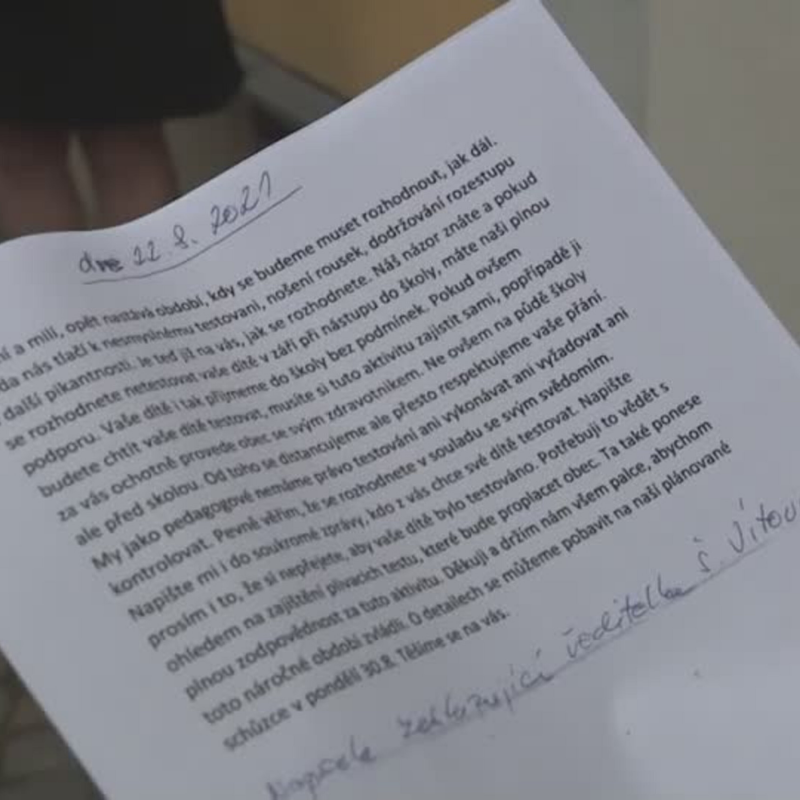 dne 22.8.2021
a milí, opět nastává období, kdy se budeme muset rozhodnout, jak dál.
nás tlačí k nesmyslnému testovani, nošení rousek, dodržování rozestupu
další pikantnosti. Je teď již na vás, jak se rozhodnete. Náš názor znáte a pokud
se rozhodnete netestovat vaše dítě v září při nástupu do školy, máte naši plnou
podporu. Vaše dítě i tak přijmeme do školy bez podmínek. Pokud ovšem
budete chtít vaše dítě testovat, musíte si tuto aktivitu zajistit sami, popřípadě ji
za vás ochotně provede obec se svým zdravotnikem. Ne ovšem na půdě školy
ale před skolou. Od toho se distancujeme ale přesto respektujeme vaše přání.
My jako pedagogové nemáme právo testování ani vykonávat ani vyžadovat ani
kontrolovat. Pevně věřím, že se rozhodnete v souladu se svým svědomím.
Napište mi i do soukromé zprávy, kdo z vás chce své dítě testovat. Napište
prosím i to, že si nepřejete, aby vaše dítě bylo testováno. Potřebuji to vědět s
ohledem na zajištění plivacích testu, které bude proplacet obec. Ta také ponese
plnou zodpovědnost za tuto aktivitu. Děkuji a držím nám všem palce, abychom
toto náročné období zvládli. O detailech se můžeme pobavit na naší plánované
schůzce v pondělí 30.8. Těšíme se na vás.
Napsala zastupující ředitelka š. Vítov